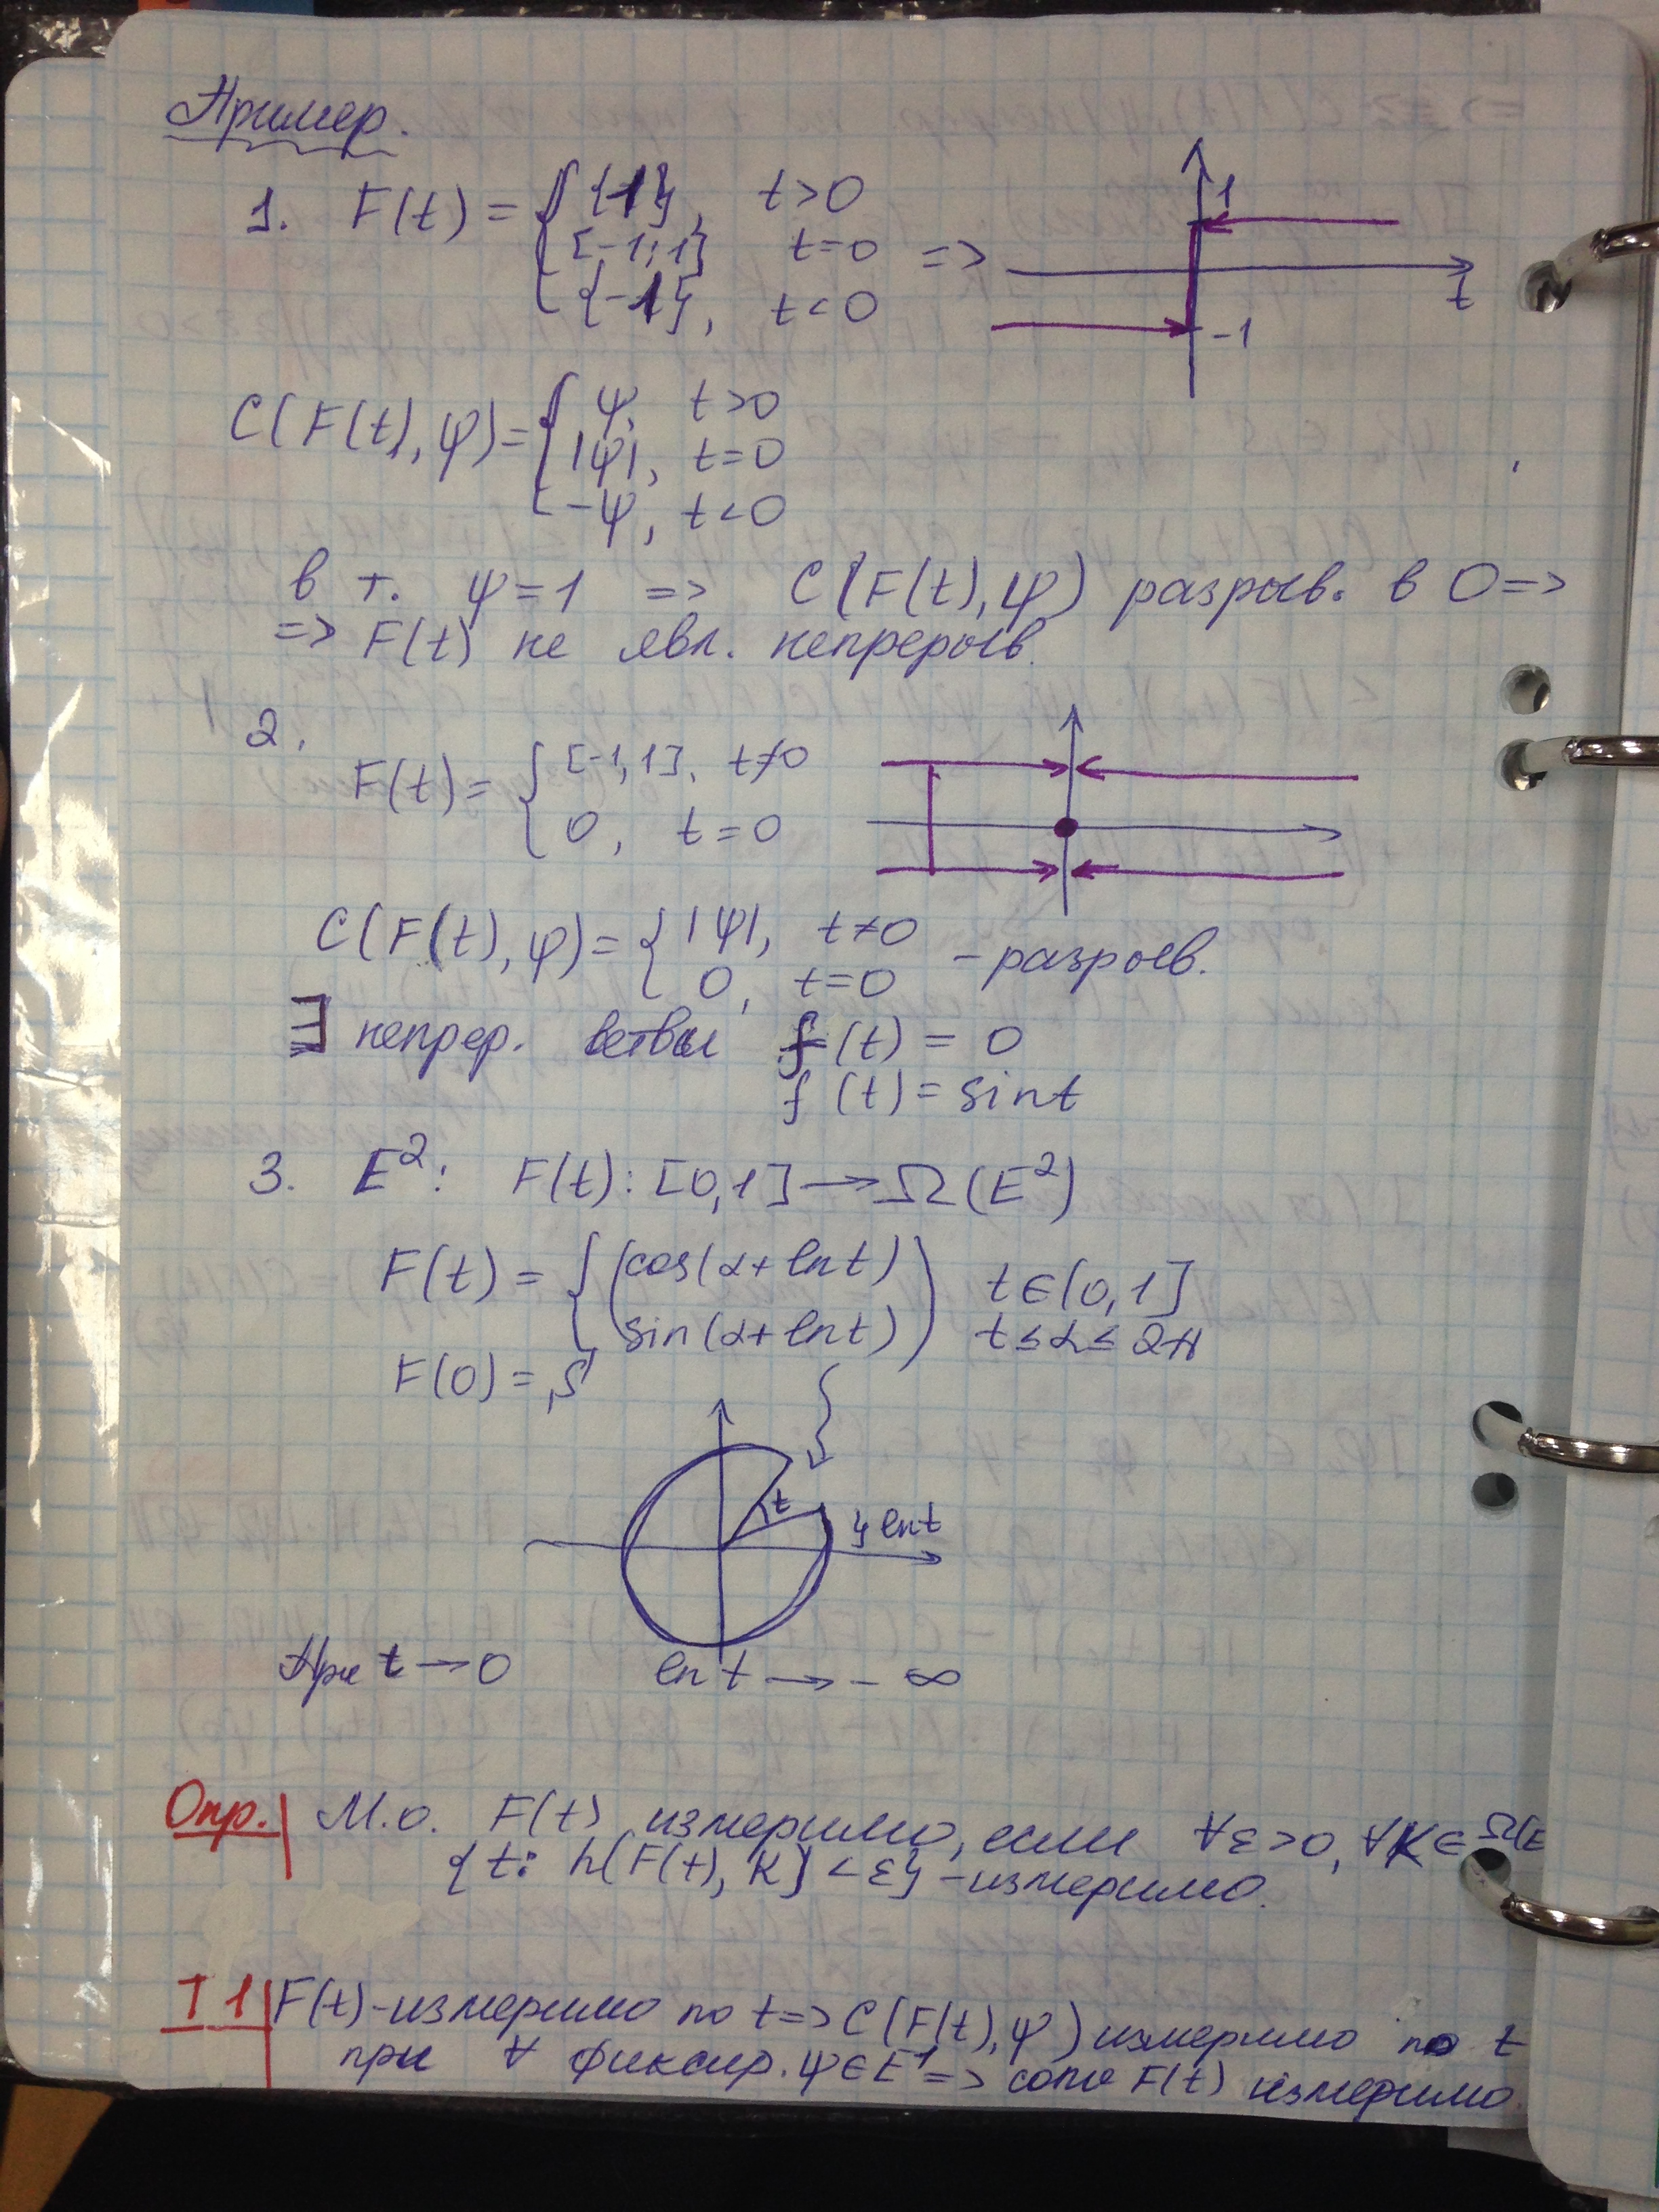 Пример.
1. F(t) = { {1}, t>0
[-1;1] t=0 =>
{-1}, t<0
1
t
-1
C(F(t), ψ) = { ψ, t>0
|ψ|, t=0
-ψ, t<0
в т. ψ=1 => C(F(t), ψ) разрыв. в 0 =>
=> F(t) не явл. непрерыв.
2.
F(t) = { [-1,1], t≠0
0, t=0
C(F(t), ψ) = { |ψ|, t≠0
0, t=0 - разрыв.
∃ непрер. ветвы f(t) = 0
f(t) = sin t
3. E²: F(t): [0,1] → Ω(E²)
F(t) = { (cos(α+ln t)
sin(α+ln t)) t∈(0,1]
t≤α≤2π
F(0) = S
t
} ln t
При t → 0 ln t → -∞
Опр. М.о. F(t) измеримо, если ∀ε>0, ∀K∈Ω(E
{t: h(F(t), K) <ε} - измеримо.
T 1 F(t) - измеримо по t => C(F(t), ψ) измеримо по t
при ∀ фиксир. ψ∈E¹ => conv F(t) измеримо.